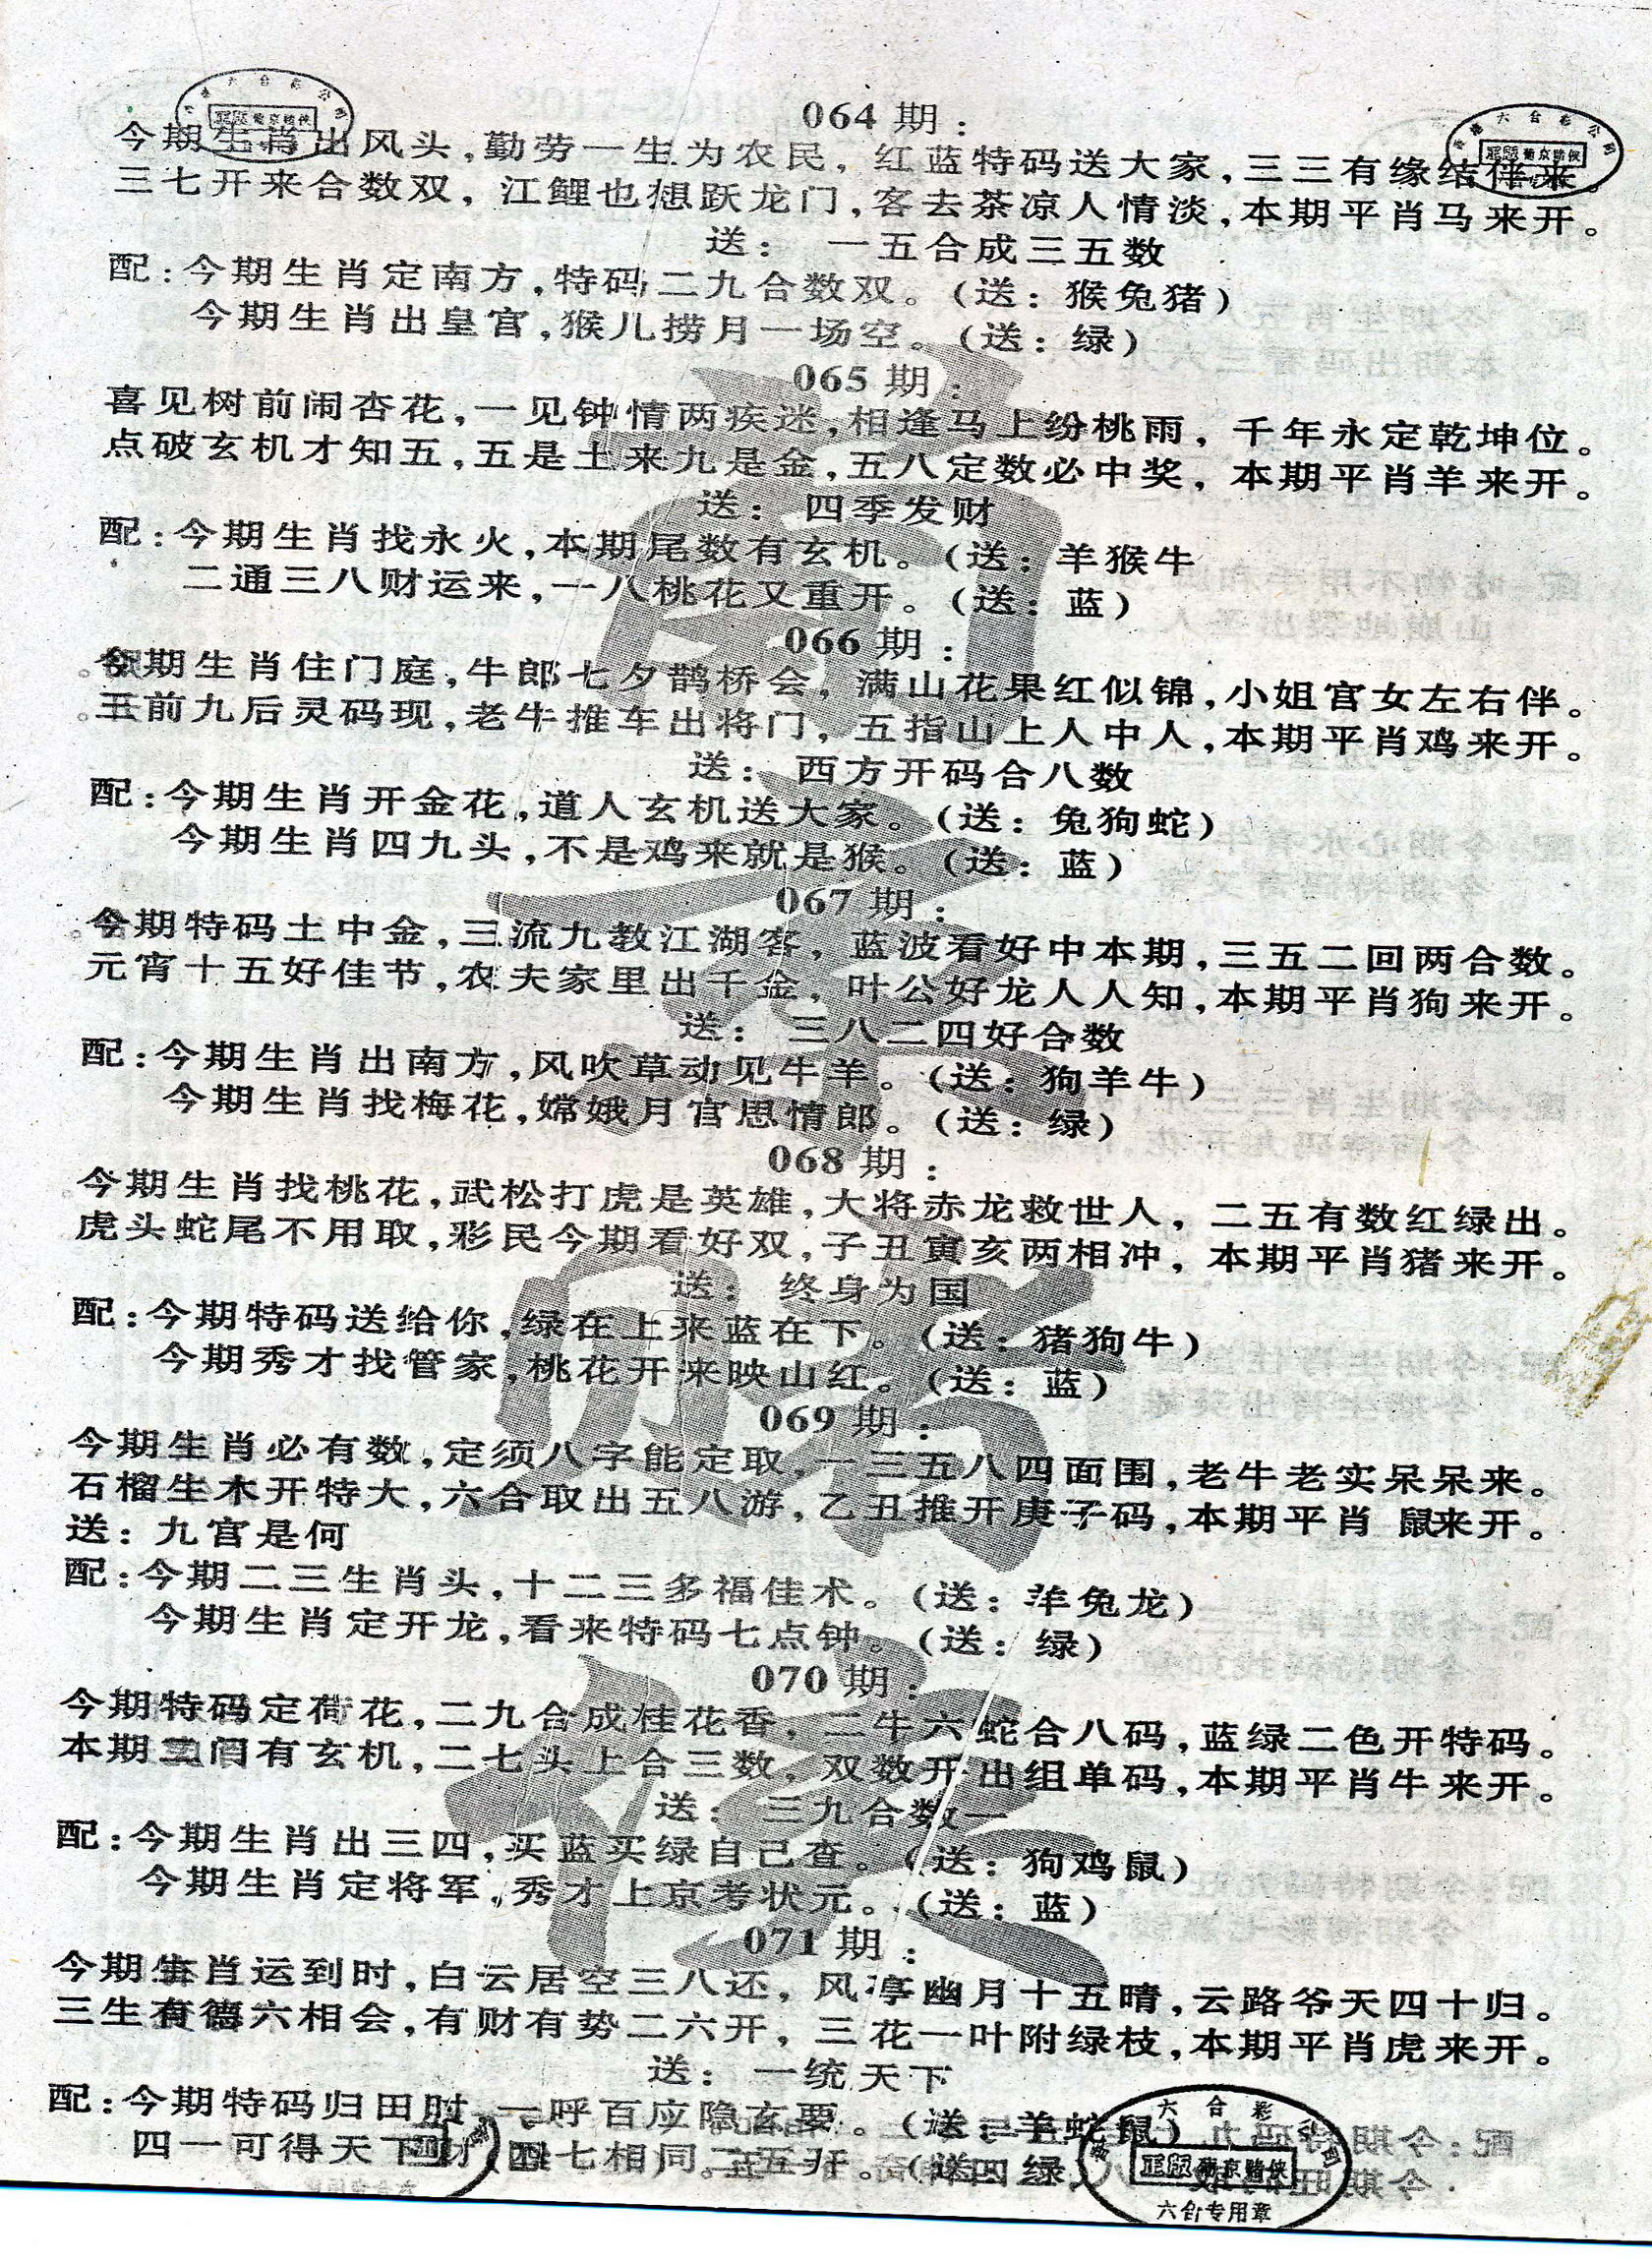 064期：
今期生肖出风头,勤劳一生为农民，红蓝特码送大家,三三有缘结伴来。
三七开来合数双，江鲤也想跃龙门,客去茶凉人情淡,本期平肖马来开。
送： 一五合成三五数
配:今期生肖定南方,特码二九合数双。(送：猴兔猪)
今期生肖出皇宫,猴儿捞月一场空。(送：绿)
065期：
喜见树前闹杏花,一见钟情两疾迷,相逢马上纷桃雨，千年永定乾坤位。
点破玄机才知五,五是土来九是金,五八定数必中奖，本期平肖羊来开。
送： 四季发财
配:今期生肖找永火,本期尾数有玄机。(送：羊猴牛
二通三八财运来,一八桃花又重开。(送：蓝)
066期：
今期生肖住门庭,牛郎七夕鹊桥会，满山花果红似锦,小姐官女左右伴。
五前九后灵码现,老牛推车出将门，五指山上人中人,本期平肖鸡来开。
送： 西方开码合八数
配:今期生肖开金花,道人玄机送大家。(送：兔狗蛇)
今期生肖四九头,不是鸡来就是猴。(送：蓝)
067期：
今期特码土中金,三流九教江湖客，蓝波看好中本期,三五二回两合数。
元宵十五好佳节,农夫家里出千金，叶公好龙人人知,本期平肖狗来开。
送： 三八二四好合数
配:今期生肖出南方,风吹草动见牛羊。(送：狗羊牛)
今期生肖找梅花,嫦娥月官思情郎。(送：绿)
068期：
今期生肖找桃花,武松打虎是英雄,大将赤龙救世人，二五有数红绿出。
虎头蛇尾不用取,彩民今期看好双,子丑寅亥两相冲，本期平肖猪来开。
送： 终身为国
配:今期特码送给你,绿在上来蓝在下。(送：猪狗牛)
今期秀才找管家,桃花开来映山红。(送：蓝)
069期：
今期生肖必有数,定须八字能定取,一三五八四面围,老牛老实呆呆来。
石榴生木开特大,六合取出五八游,乙丑推开庚子码,本期平肖 鼠来开。
送：九宫是何
配:今期二三生肖头,十二三多福佳术。(送：羊兔龙)
今期生肖定开龙,看来特码七点钟。(送：绿)
070期：
今期特码定荷花,二九合成桂花香，二牛六蛇合八码,蓝绿二色开特码。
本期 门有玄机,二七头上合三数，双数开出组单码,本期平肖牛来开。
送： 三九合数一
配:今期生肖出三四,买蓝买绿自己查。(送：狗鸡鼠)
今期生肖定将军,秀才上京考状元。(送：蓝)
071期：
今期生肖运到时,白云居空三八还，风亭幽月十五晴,云路爷天四十归。
三生有德六相会,有财有势二六开，三花一叶附绿枝,本期平肖虎来开。
送： 一统天下
配:今期特码归田时 一呼百应隐玄要。(送：羊蛇鼠)
四一可得天下财 七相同 二五开。(送：绿
葡京赌侠
正版 葡京赌侠
六合彩
正版 葡京赌侠
六合专用章